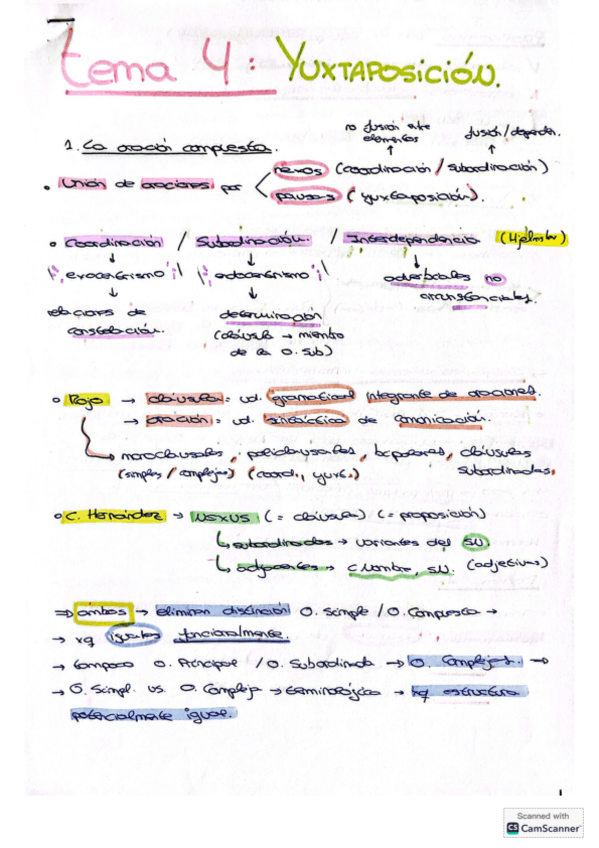 Tema 4: YUXTAPOSICIÓN.
no fusión entre elementos
fusión/depender.
1. La oración compuesta.
• Unión de oraciones por nexos (coordinación / subordinación)
pausas (yuxtaposición).
• Coordinación / Subordinación. / Interdependencia (Hjelmslev)
↓ ↓ ↓
"exocentrismo" "endocentrismo" adverbiales no circunstanciales.
↓ ↓
relaciones de constelación. determinación
(cláusula → miembro de la O. Sub)
• Rojo → cláusula = ud. gramatical integrante de oraciones.
→ oración = ud. sintáctica de comunicación.
→ monoclausales, policlausales, bipolares, cláusulas subordinadas.
(simples / complejas) (coord., yuxt.)
• C. Hernández → NEXUS (= cláusula) (= proposición)
↳ subordinados → variantes del SN.
↳ adyacentes → C. Nombre, SN. (adjetivas)
⇒ ambos → eliminan distinción O. Simple / O. Compuesta →
→ xq iguales funcionalmente.
→ tampoco O. Principal / O. Subordinada → O. Complejas. →
→ O. Simpl. vs. O. Compleja → terminológico → xq estructura
potencialmente igual.
1
Scanned with
CS CamScanner